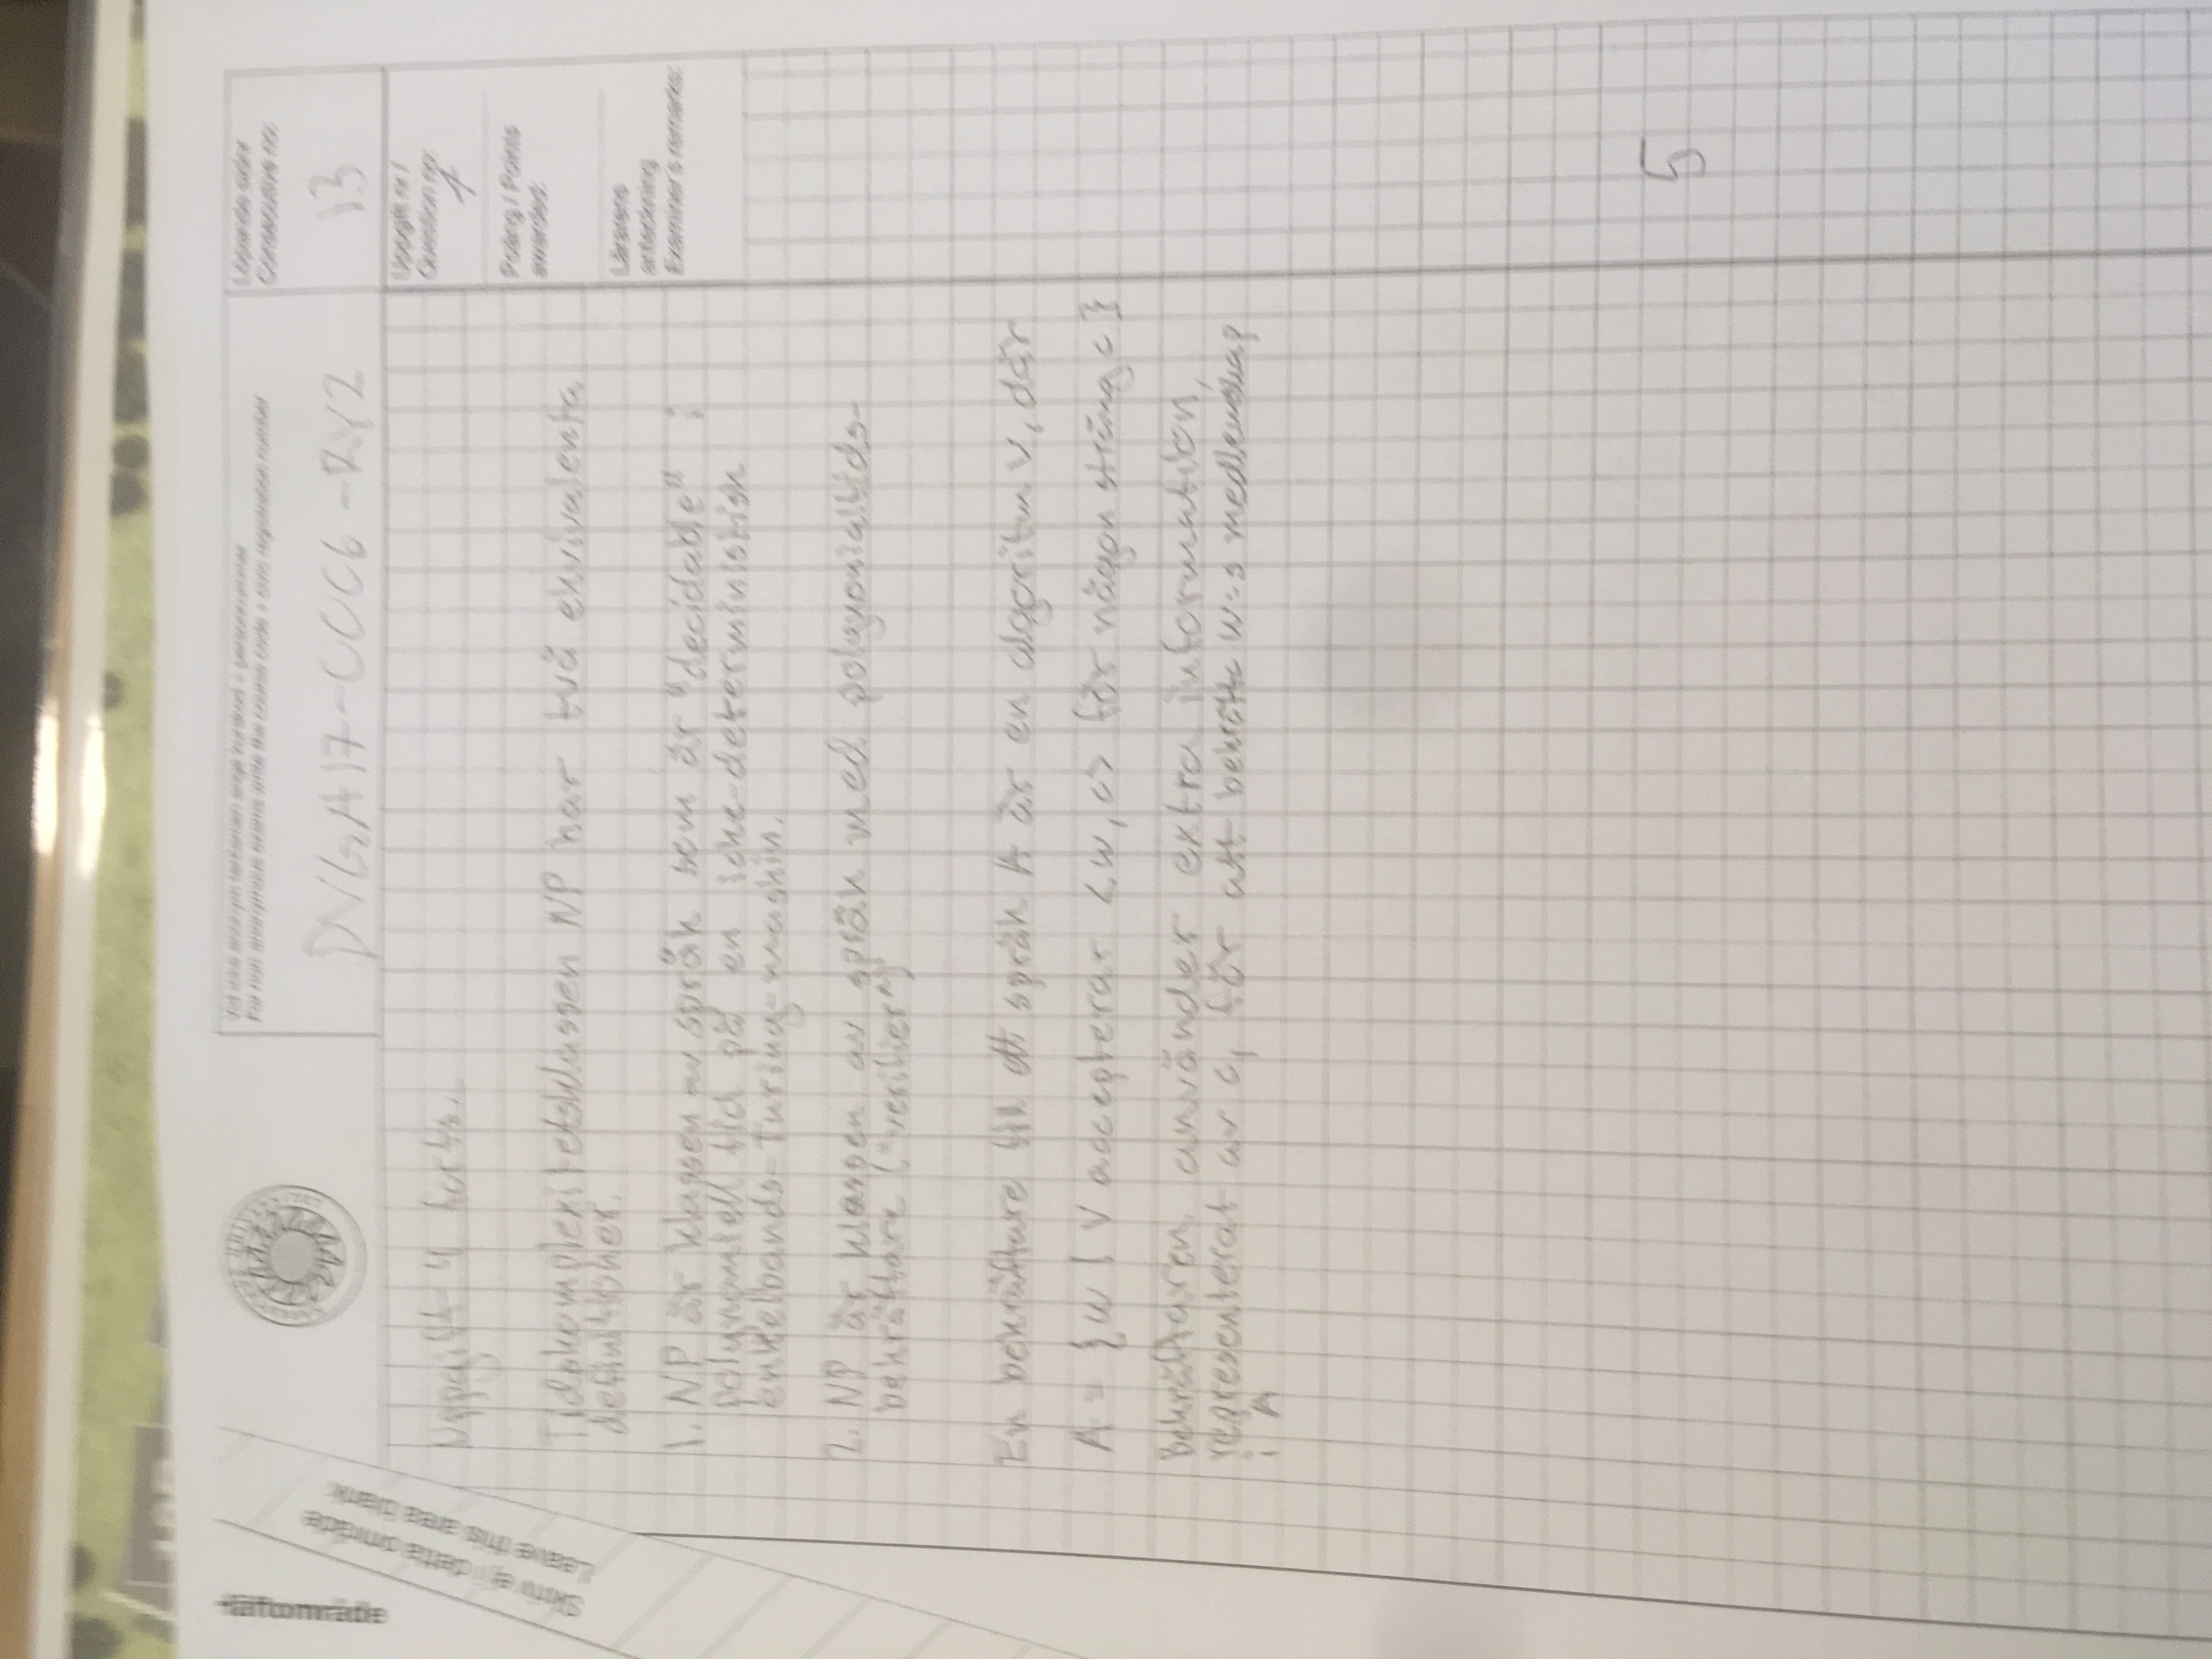 Skriv ej i detta område
Leave this area blank
Vid icke anonym tentamen ange kurskod + personnummer
For non-anonymous exams write the course code + civic registration number
DVGA17-0006-RYZ
Löpande sidnr
Consecutive no:
13
Uppgift nr /
Question no:
Poäng / Points
awarded:
Lärarens
anteckning
Examiner's remarks:
Uppgift 4 forts.
Tidskomplexitetsklassen NP har två ekvivalenta
definitioner.
1. NP är klassen av språk som är "decidable" i
polynomiell tid på en icke-deterministisk
enkelbands-Turing-maskin.
2. NP är klassen av språk med polynomialtids-
bekräftare ("verifier")
En bekräftare till ett språk A är en algoritm V, där
A = {w | V accepterar <w, c> för någon sträng c}
Bekräftaren använder extra information,
representerat av c, för att bekräfta w:s medlemskap
i A
5